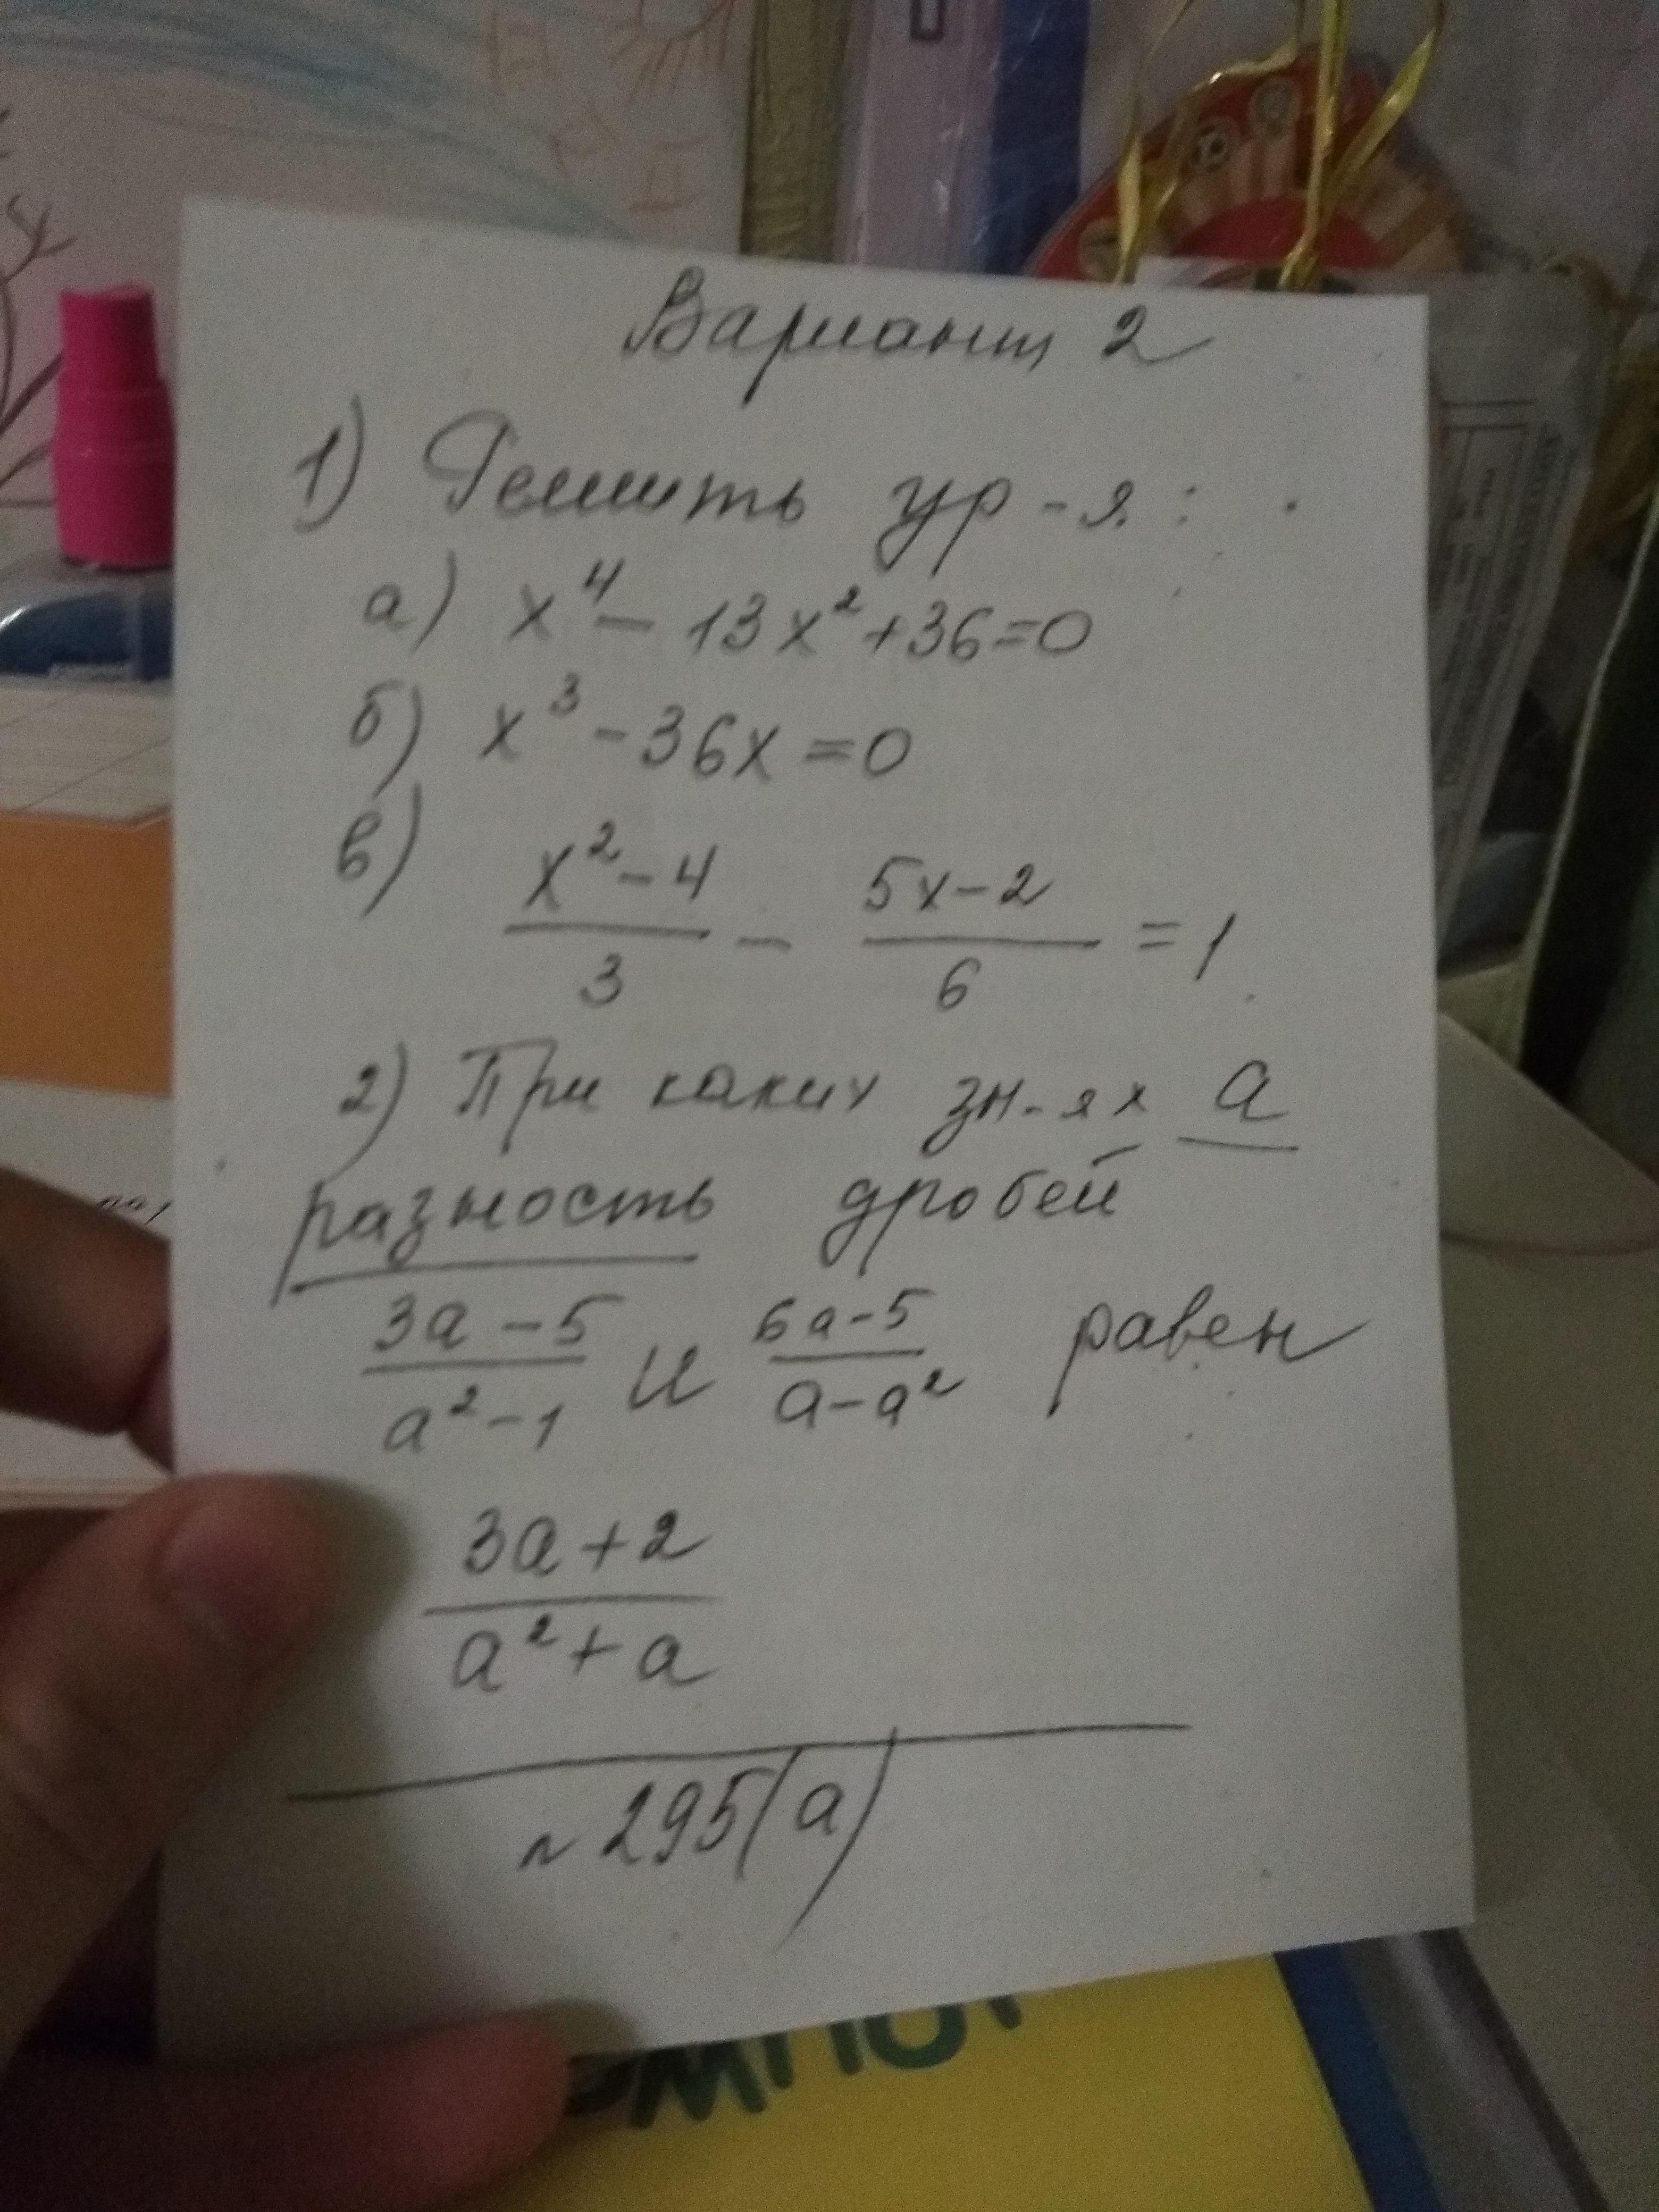 Вариант 2
1) Решить ур-я:
а) x⁴ - 13x² + 36 = 0
б) x³ - 36x = 0
в) (x² - 4)/3 - (5x - 2)/6 = 1
2) При каких зн-ях a
разность дробей
(3a - 5)/(a² - 1) и (6a - 5)/(a - a²) равен
(3a + 2)/(a² + a)
№ 295(а)